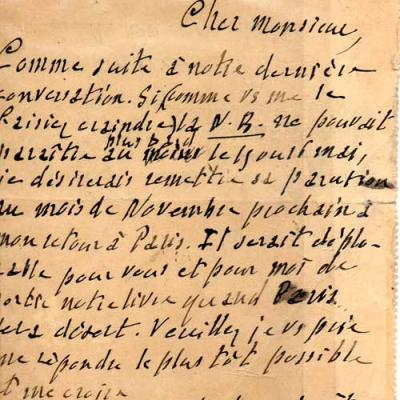 Cher monsieur,
Comme suite à notre dernière
conversation. Si comme vs me le
faisiez craindre, la N.R. ne pouvait
paraître au plus tard le 15 mai,
je désirerais remettre sa parution
au mois de Novembre prochain à
mon retour à Paris. Il serait déplo-
rable pour vous et pour moi de
sortir notre livre quand Paris
sera désert. Veuillez je vs prie
me répondre le plus tôt possible
et me croire